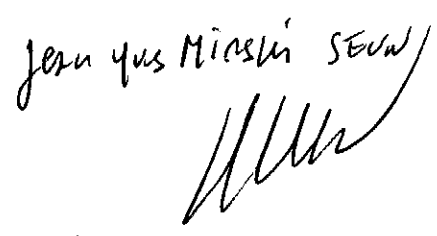 Jean Yves Mirski SEVN